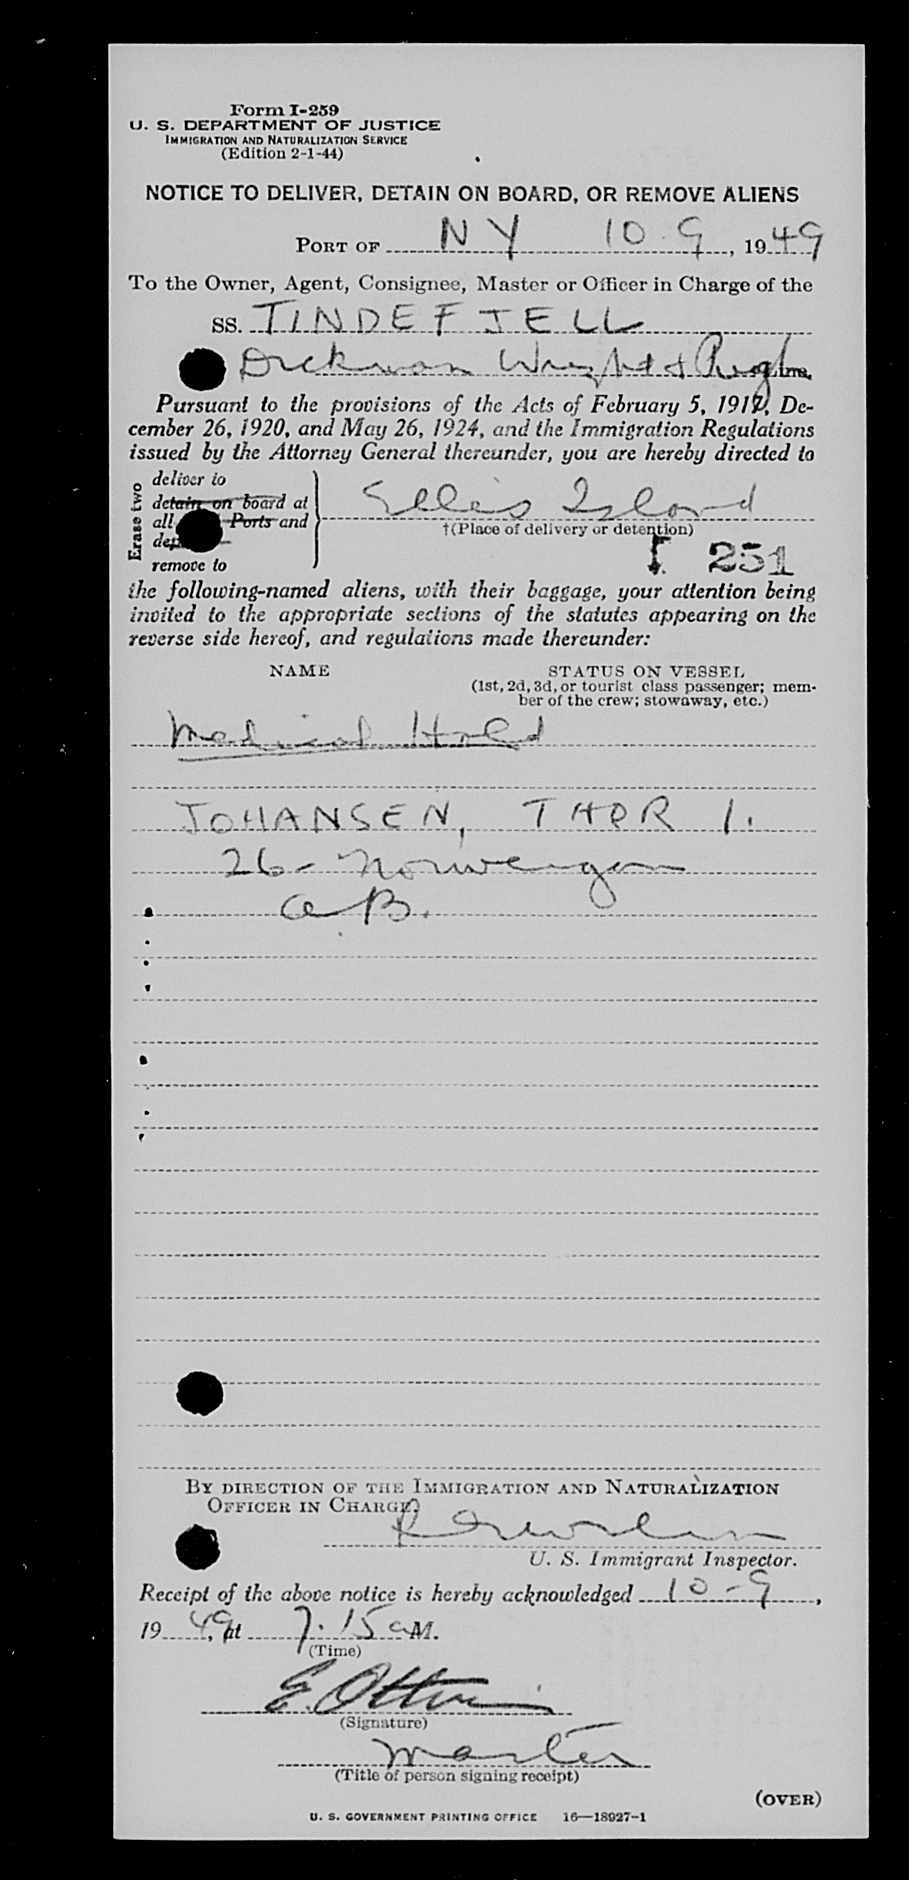 Form I-259
U. S. DEPARTMENT OF JUSTICE
IMMIGRATION AND NATURALIZATION SERVICE
(Edition 2-1-44)
NOTICE TO DELIVER, DETAIN ON BOARD, OR REMOVE ALIENS
PORT OF NY 10-9, 1949
To the Owner, Agent, Consignee, Master or Officer in Charge of the
SS. TINDEFJELL
Dickman Wright & Pugh
Pursuant to the provisions of the Acts of February 5, 1917, De-
cember 26, 1920, and May 26, 1924, and the Immigration Regulations
issued by the Attorney General thereunder, you are hereby directed to
Erase two
deliver to
detain on board at
all Ports and
remove to
Ellis Island
†(Place of delivery or detention)
251
the following-named aliens, with their baggage, your attention being
invited to the appropriate sections of the statutes appearing on the
reverse side hereof, and regulations made thereunder:
NAME STATUS ON VESSEL
(1st, 2d, 3d, or tourist class passenger; mem-
ber of the crew; stowaway, etc.)
Medical Hold
JOHANSEN, THOR I.
26- Norwegian
AB.
BY DIRECTION OF THE IMMIGRATION AND NATURALIZATION
OFFICER IN CHARGE
U. S. Immigrant Inspector.
Receipt of the above notice is hereby acknowledged 10-9,
1949, at 7.15 aM.
(Time)
(Signature)
master
(Title of person signing receipt)
(OVER)
U. S. GOVERNMENT PRINTING OFFICE 16—18927-1